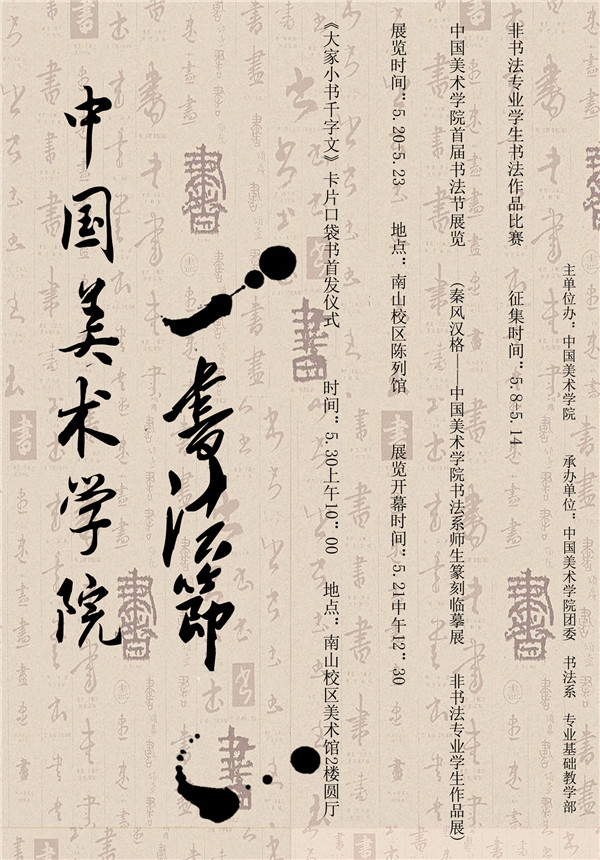 主单位办：中国美术学院 承办单位：中国美术学院团委 书法系 专业基础教学部
非书法专业学生书法作品比赛 征集时间：5.8-5.14
中国美术学院首届书法节展览 （秦风汉格——中国美术学院书法系师生篆刻临摹展 非书法专业学生作品展）
展览时间：5.20-5.23 地点：南山校区陈列馆 展览开幕时间：5.21中午12：30
《大家小书千字文》卡片口袋书首发仪式 时间：5.30上午10：00 地点：南山校区美术馆2楼圆厅
書法節
中国美术学院